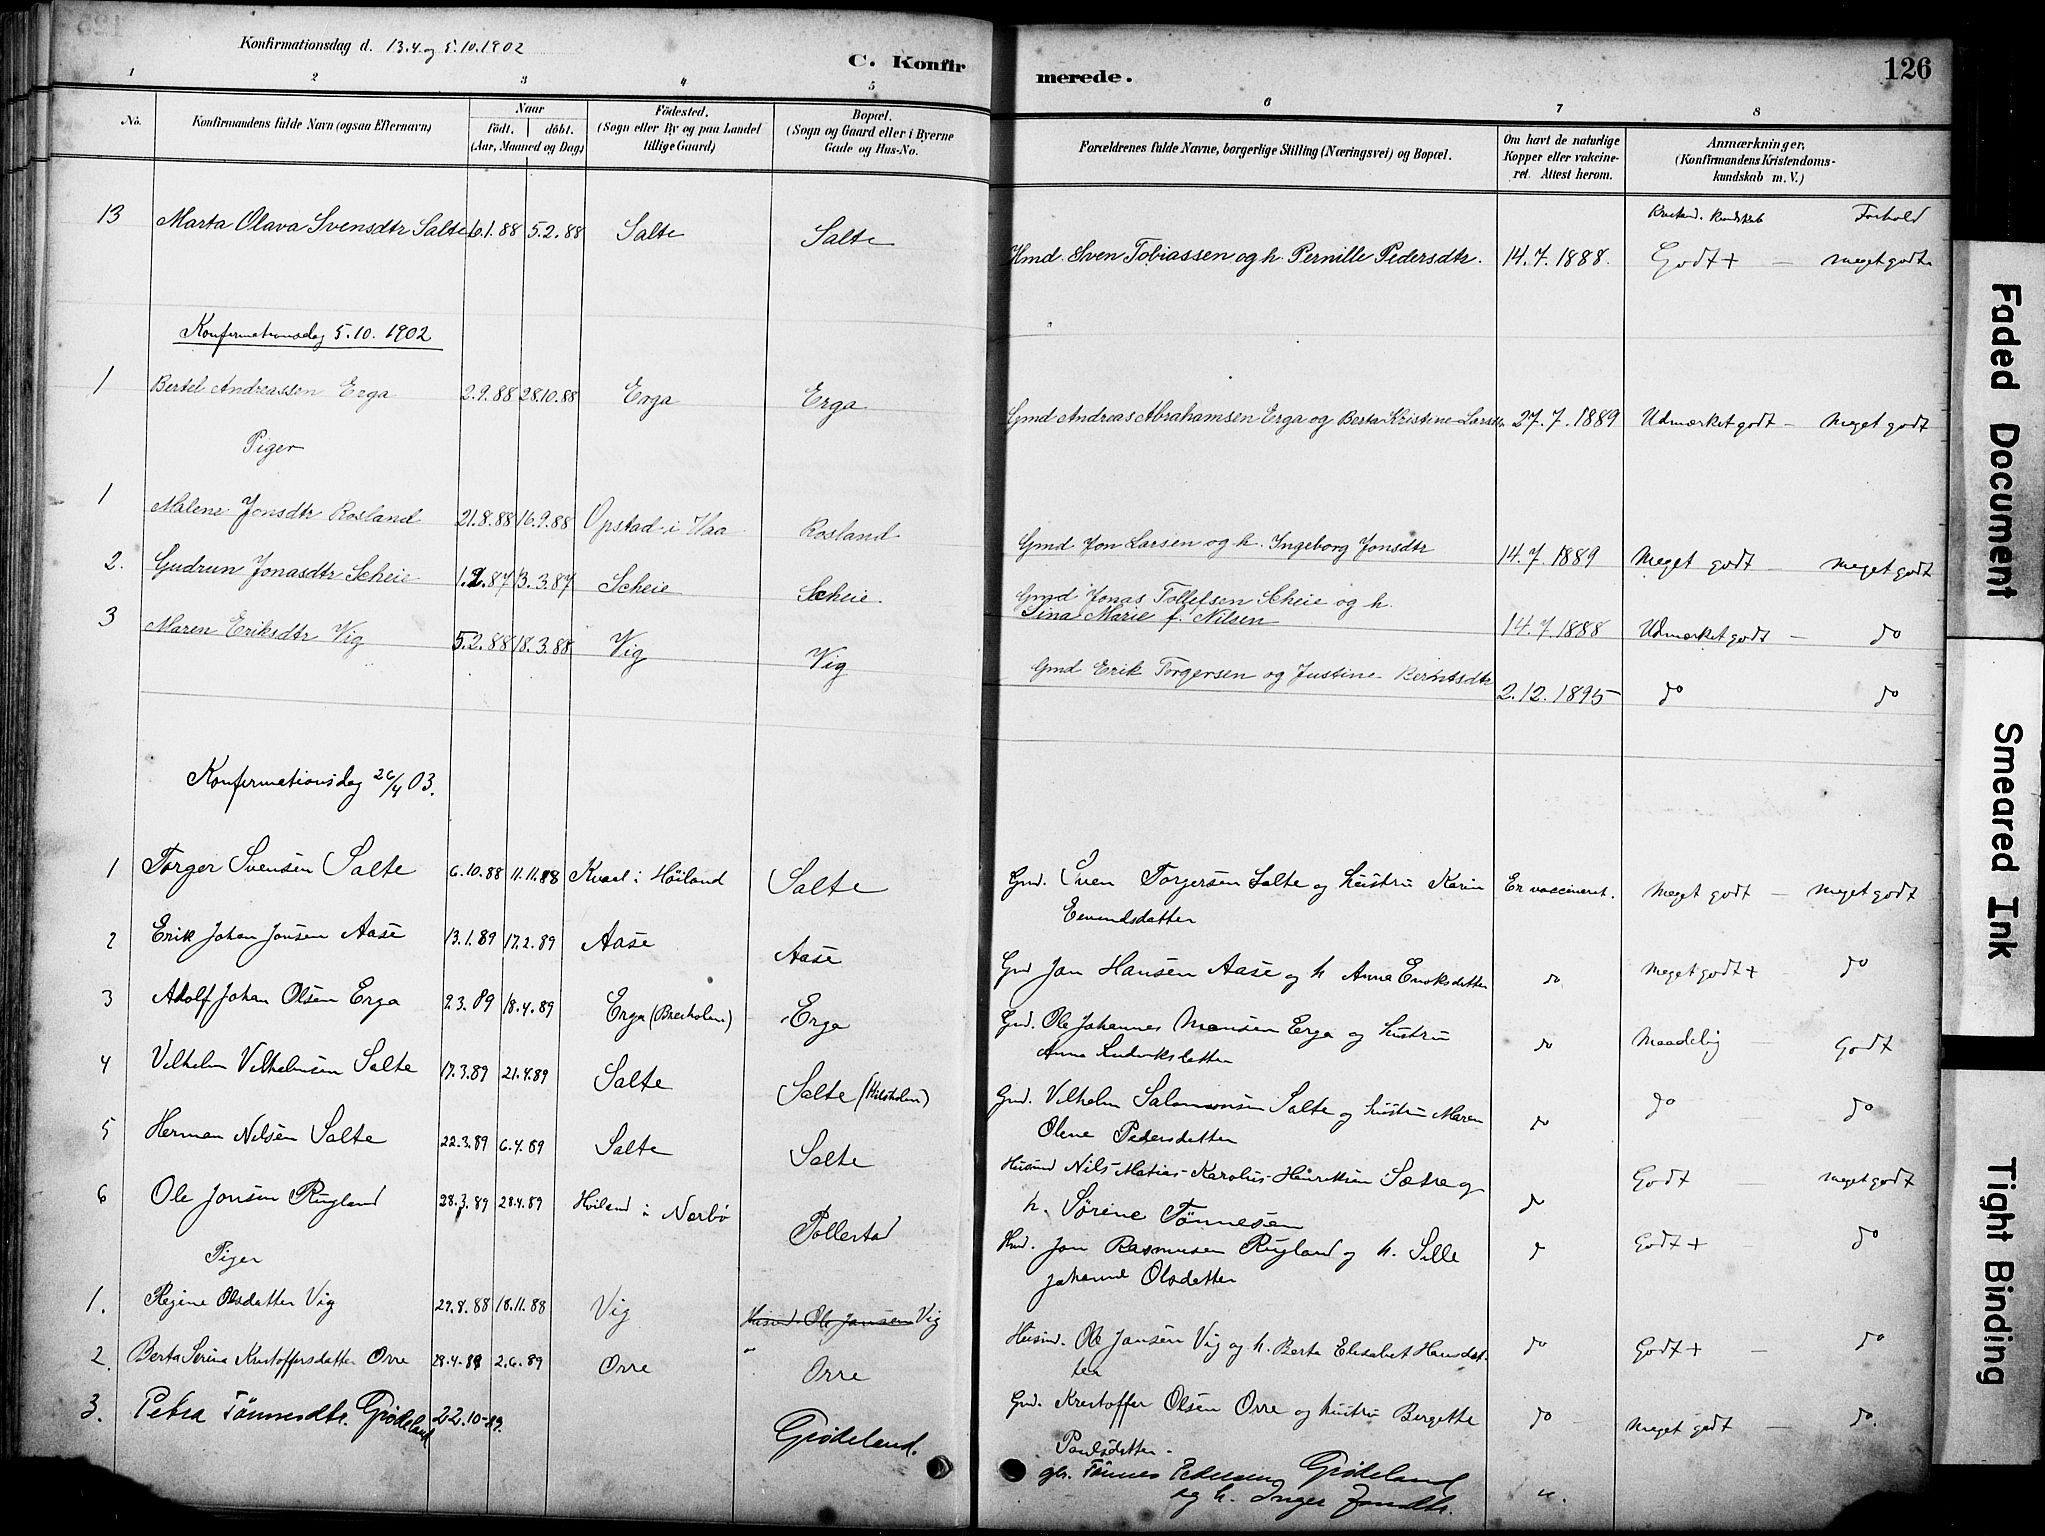 Konfirmationsdag d. 13.4 og 5.10.1902
C. Konfirmerede.
126
1 2 3 4 5 6 7 8
No.
Konfirmandens fulde Navn (ogsaa Efternavn)
Naar
födt. döbt.
(Aar, Maaned og Dag)
Födested.
(Sogn eller By og paa Landet tillige Gaard)
Bopæl.
(Sogn og Gaard eller i Byerne Gade og Hus-No.
Forældrenes fulde Navne, borgerlige Stilling (Næringsvei) og Bopæl.
Om havt de naturlige Kopper eller vakcineret. Attest herom.
Anmærkninger,
(Konfirmandens Kristendomskundskab m. V.)
Kristend. Kundskab Forhold
13 Marta Olava Svensdtr Salte 6.1.88 5.2.88 Salte Salte Hmd. Sven Tobiassen og h. Pernille Pedersdtr. 14.7.1888. Godt + — meget godt
Konfirmationsdag 5.10.1902
1 Bertel Andreassen Erga 2.9.88 28.10.88 Erga Erga Gmd Andreas Abrahamsen Erga og Berta Kristine Larsdtr 27.7.1889 Udmærket godt — meget godt
Piger
1 Malene Jonsdtr Rosland 21.8.88 16.9.88 Opstad i Haa Rosland Gmd Jon Larsen og h. Ingeborg Jonsdtr 14.7.1889 Meget godt — meget godt
2. Gudrun Jonasdtr Scheie 1.2.87 13.3.87 Scheie Scheie Gmd Jonas Tollefsen Scheie og h.
Sina Marie f. Nilsen 14.7.1888 Udmærket godt — do
3 Maren Eriksdtr Vig 5.2.88 18.3.88 Vig Vig Gmd Erik Torgersen og Justine Berntsdtr 2.12.1895 do do
Konfirmationsdag 26/4 03.
1 Torger Svensen Salte 6.10.88 11.11.88 Kvael i Höiland Salte Gmd. Sven Torgersen Salte og hustru Karin
Emundsdatter Er vaccineret. Meget godt — meget godt
2 Erik Johan Jonsen Aase 13.1.89 17.2.89 Aase Aase Gmd Jon Hansen Aase og h Anna Enoksdatter do Meget godt + do
3 Adolf Johan Olsen Erga 9.3.89 18.4.89 Erga (Bresholen) Erga Gmd. Ole Johannes Monsen Erga og hustru
Anna Ludviksdatter do Maadelig — Godt
4 Vilhelm Vilhelmsen Salte 17.3.89 21.4.89 Salte Salte (Milsholen) Gmd. Vilhelm Salomonsen Salte og hustru Maren
Olene Pedersdatter do do do
5 Herman Nilsen Salte 22.3.89 6.4.89 Salte Salte Husmd Nils Matias Karolus Henriksen Sætre og
h. Sørine Tönnesen do Godt — meget godt
6 Ole Jonsen Rugland 28.3.89 28.4.89 Höiland i Nærbö Pollestad Hmd. Jon Rasmusen Rugland og h. Sille
Johanne Olsdatter do Godt + — do
Piger
1. Regine Olsdatter Vig 29.8.88 18.11.88 Vig Husmd. Ole Jansen Vig Husmd. Ole Jansen Vig og h. Berta Elisabet Hansdatter do Godt + — do
2. Berta Serina Kristoffersdatter Orre 28.4.89 2.6.89 Orre Orre Gmd. Kristoffer Olsen Orre og hustru Bergette
Paulsdatter do Meget godt — do.
3. Petra Tönnesdtr. Grödeland 22.10-89. Grödeland. gbr. Tönnes Pedersen Grödeland
og h. Inger Jonsdtr. ".
Faded Document
Smeared Ink
Tight Binding